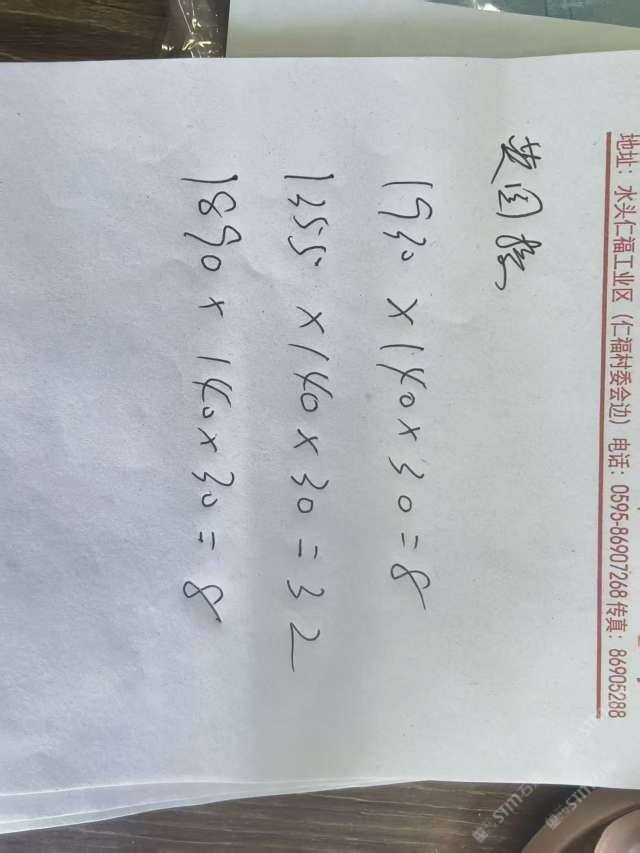 地址：水头仁福工业区（仁福村委会边）电话：0595-86907268 传真：86905288
1930 x 140 x 30 = 8
1355 x 140 x 30 = 32
1890 x 140 x 30 = 8